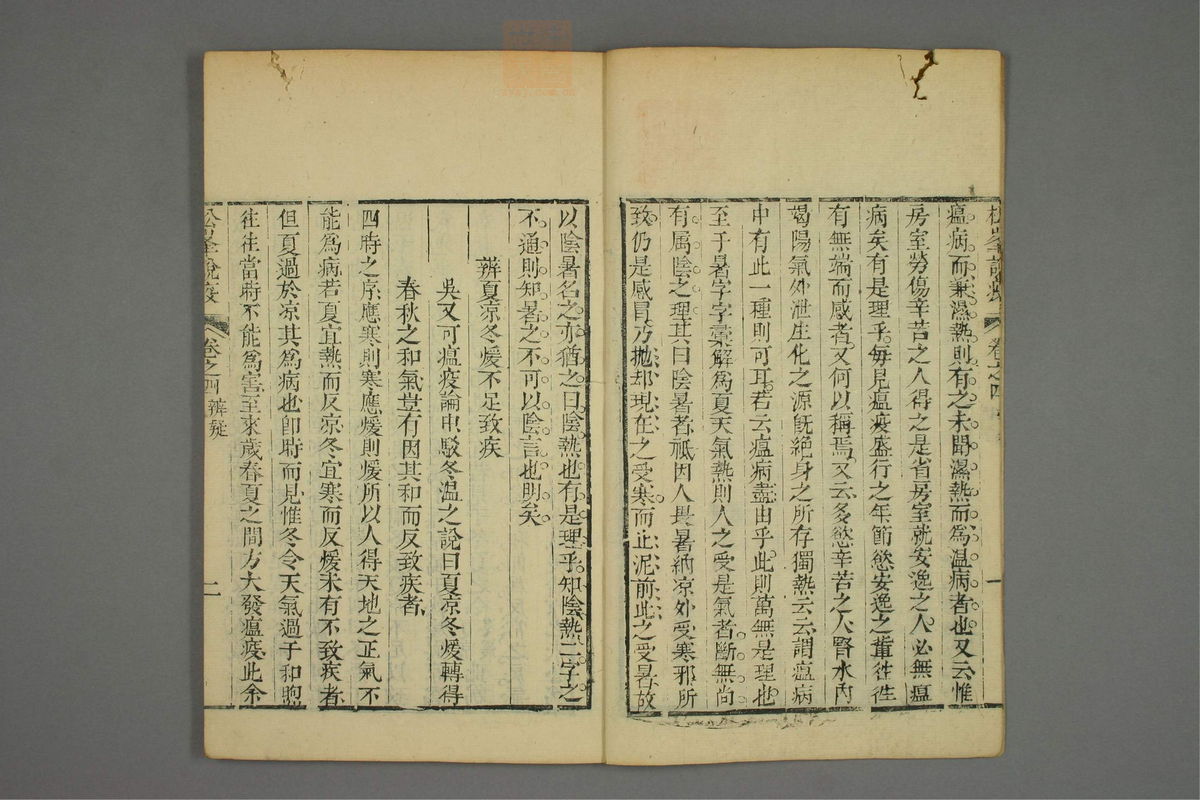 松峯說疫 卷之四 一
瘟病而兼濕熱則有之未聞濕熱而爲温病者也又云惟
房室勞傷辛苦之人得之是省房室就安逸之人必無瘟
病矣有是理乎每見瘟疫盛行之年節慾安逸之輩徃徃
有無端而感者又何以稱焉又云多慾辛苦之人腎水內
竭陽氣外泄生化之源旣絶身之所存獨熱云云謂瘟病
中有此一種則可耳若云瘟病盡由乎此則萬無是理也
至于暑字字彙解爲夏天氣熱則人之受是氣者斷無尚
有屬陰之理其曰陰暑者祗因人畏暑納凉外受寒邪所
致仍是感冐乃抛却現在之受寒而止泥前此之受暑故
以陰暑名之亦猶之曰陰熱也有是理乎知陰熱二字之
不通則知暑之不可以陰言也明矣
辨夏凉冬煖不足致疾
吳又可瘟疫論中駁冬温之說曰夏凉冬煖轉得
春秋之和氣豈有因其和而反致疾者
四時之序應寒則寒應煖則煖所以人得天地之正氣不
能爲病若夏宜熱而反凉冬宜寒而反煖未有不致疾者
但夏過於凉其爲病也卽時而見惟冬令天氣過于和煦
徃徃當時不能爲害至來歲春夏之間方大發瘟疫此余
松峯說疫 卷之四 辨疑 二